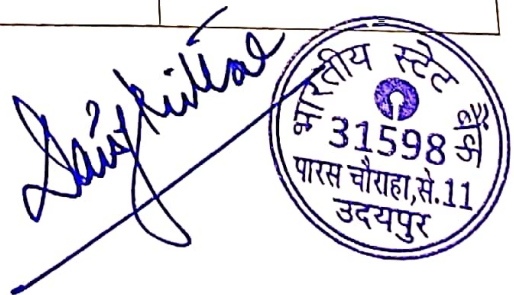 भारतीय स्टेट बैंक
31598
पारस चौराहा,से.11
उदयपुर